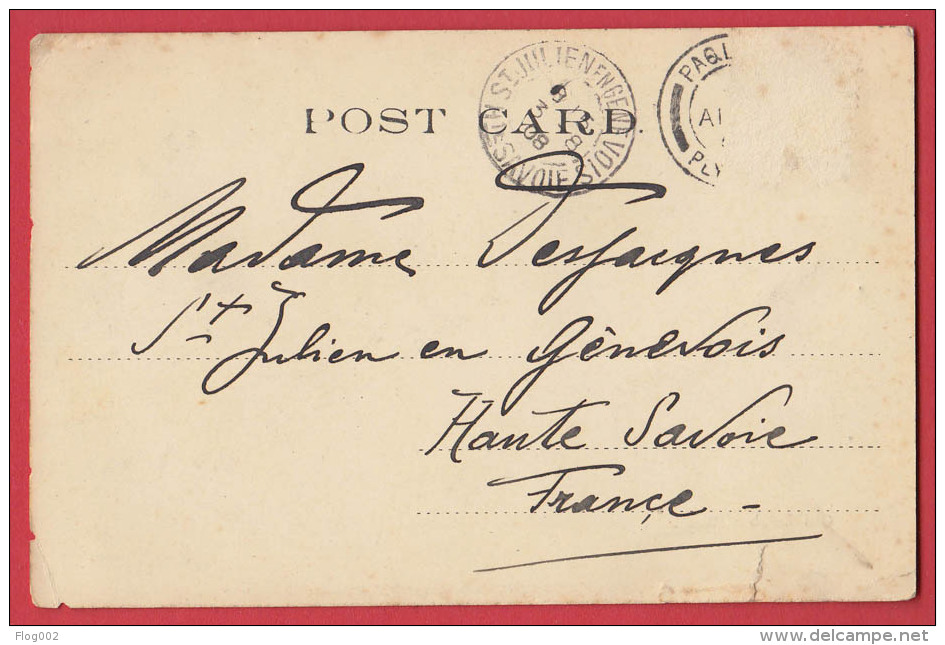 POST CARD.
ST JULIEN EN GENEVOIS
HTE SAVOIE
8 3 08
PAQ
PLY
Madame Desjacques
St Julien en Génevois
Haute Savoie
France -
Flog002
www.delcampe.net